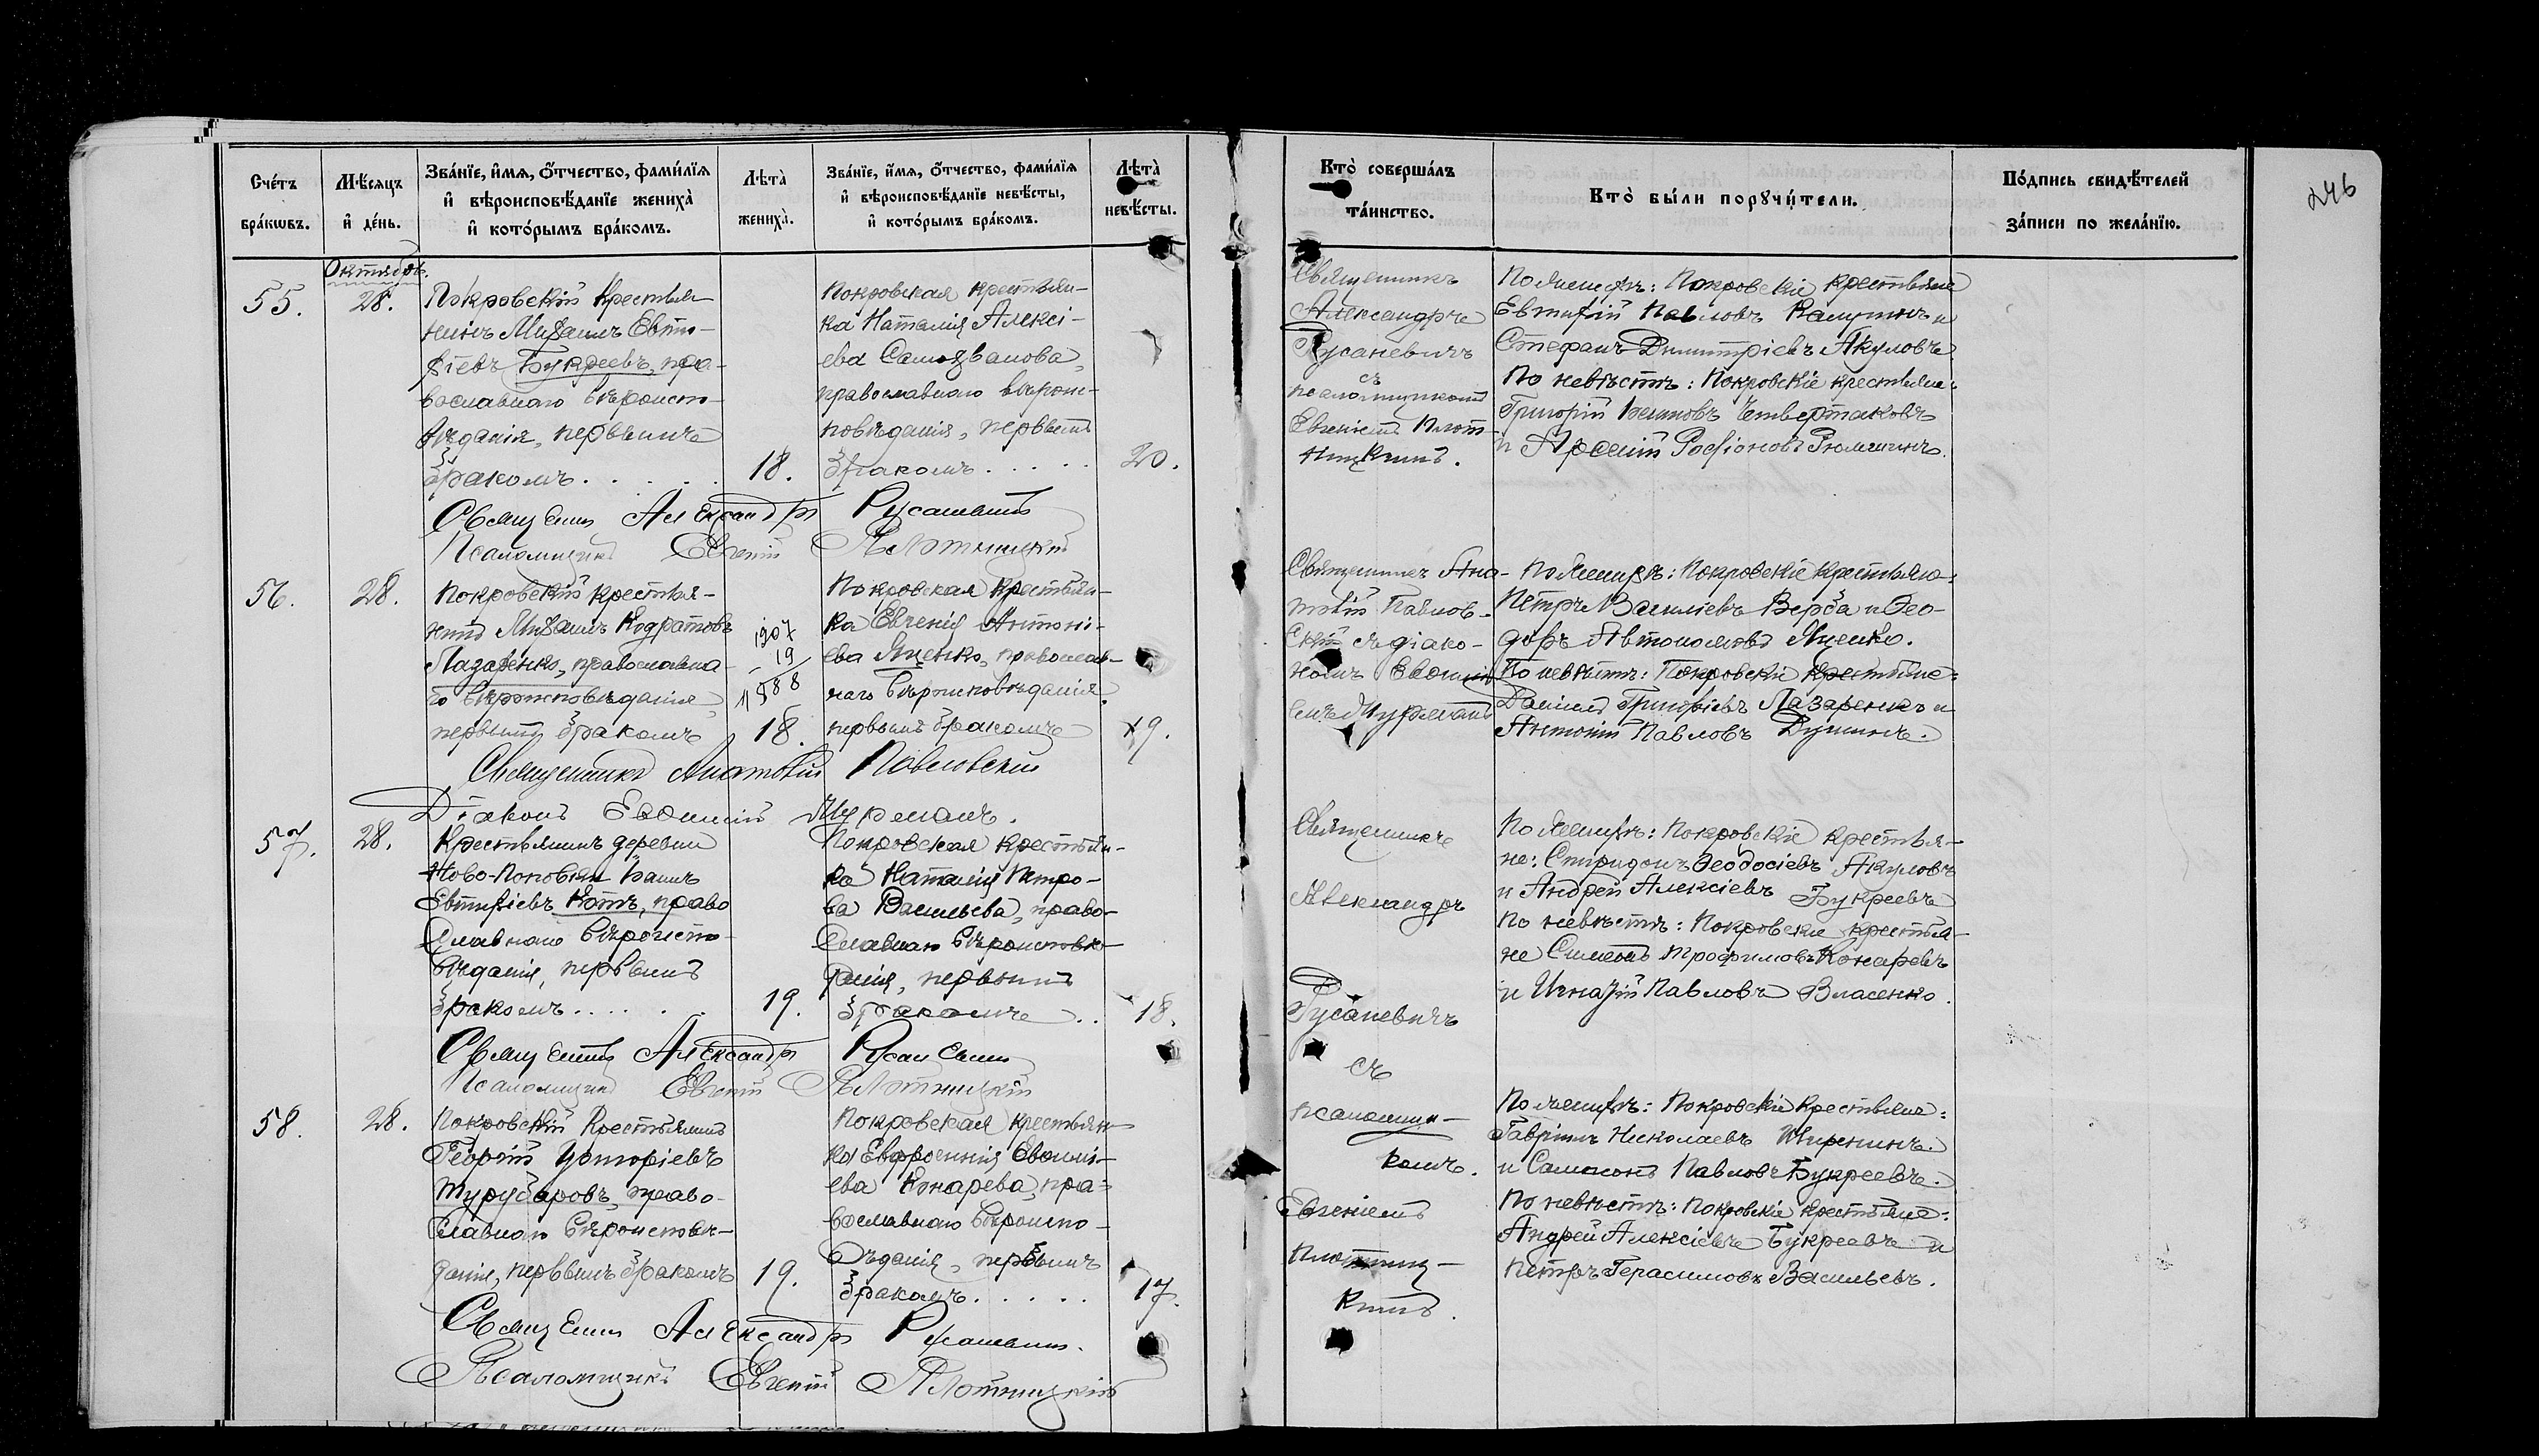 246
Счетъ браковъ.
Мѣсяцъ и день.
Званіе, имя, отчество, фамилія и вѣроисповѣданіе жениха и которымъ бракомъ.
Лѣта жениха.
Званіе, имя, отчество, фамилія и вѣроисповѣданіе невѣсты, и которымъ бракомъ.
Лѣта невѣсты.
Кто совершалъ таинство.
Кто были поручители.
Подпись свидѣтелей записи по желанію.
Октябрь.
55.
28.
Покровскій крестья-
нинъ Михаилъ Евти-
хіевъ Букреевъ, пра-
вославнаго вѣроиспо-
вѣданія, первымъ
бракомъ.....
18.
Покровская крестьян-
ка Наталія Алексі-
ева Самозванова,
православнаго вѣроис-
повѣданія, первымъ
бракомъ.....
20.
Священникъ
Александръ
Русаневичъ
съ
псаломщикомъ
Евгеніемъ Плот-
ницкимъ.
По женихѣ: Покровскіе крестьяне
Евтихій Павловъ Калугинъ и
Стефанъ Димитріевъ Акуловъ
По невѣстѣ: Покровскіе крестьяне:
Григорій Четвертаковъ
и Арсеній Родіоновъ
Священникъ Александръ Русаневичъ
Псаломщикъ Евгеній Плотницкій
56.
28.
Покровскій крестья-
нинъ Михаилъ Кодратовъ
Лазаренко, православна-
го вѣроисповѣданія,
первымъ бракомъ
1907
- 19
1888
18.
Покровская крестьян-
ка Евгенія Антоні-
ева Яценко, православ-
наго вѣроисповѣданія,
первымъ бракомъ
19.
Священникъ Ана-
толій Павлов-
скій съ діако-
номъ Евѳимі-
емъ Шурманъ
По женихѣ: Покровскіе крестьяне:
Петръ Василіевъ Верба и Ѳео-
доръ Автономовъ Яценко.
По невѣстѣ: Покровскіе крестьяне:
Даніилъ Григоріевъ Лазаренко и
Антоній Павловъ
Священникъ Анатолій Павловскій
Діаконъ Евѳимій
57.
28.
Крестьянинъ деревни
Ново-Поповки
Евтихіевъ Котъ, право
славнаго вѣроиспо-
вѣданія, первымъ
бракомъ.....
19.
Покровская крестьян-
ка Наталія Петро-
ва Васильева, право-
славнаго вѣроисповѣ-
данія, первымъ
бракомъ..
18.
Священникъ
Александръ
Русаневичъ
съ
псаломщи-
комъ.
Евгеніемъ
Плотниц-
кимъ.
По женихѣ: Покровскіе крестья-
не: Спиридонъ Ѳеодосіевъ Акуловъ
и Андрей Алексіевъ Букреевъ
По невѣстѣ: Покровскіе крестья-
не Симеонъ Трофимовъ Конаревъ
и Игнатій Павловъ Власенко.
Священникъ Александръ Русаневичъ
Псаломщикъ Евгеній Плотницкій
58.
28.
Покровскій крестьянинъ
Георгій Григоріевъ
Турубаровъ, право-
славнаго вѣроисповѣ-
данія, первымъ бракомъ
19.
Покровская крестьян-
ка Евфросинія Евѳимі-
ева Конарева, пра-
вославнаго вѣроиспо-
вѣданія, первымъ
бракомъ.....
17.
По женихѣ: Покровскіе крестьяне:
Гавріилъ Николаевъ
и Самсонъ Павловъ Букреевъ.
По невѣстѣ: Покровскіе крестьяне:
Андрей Алексіевъ Букреевъ и
Петръ Герасимовъ Васильевъ.
Священникъ Александръ Русаневичъ.
Псаломщикъ Евгеній Плотницкій